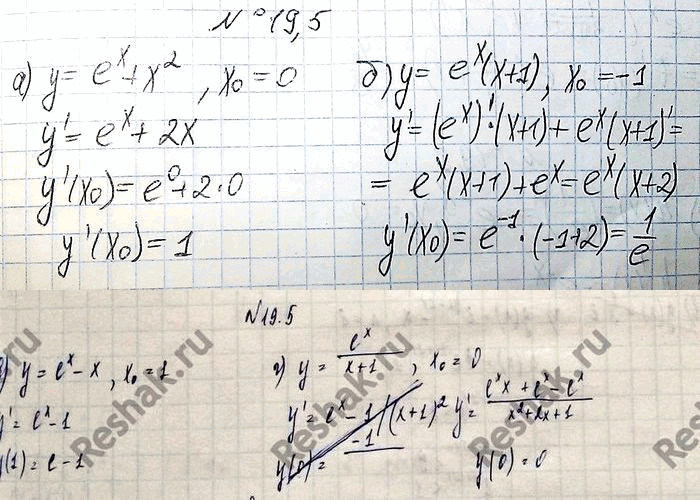 № 19,5
а) y = e^x + x^2, x₀ = 0
y' = e^x + 2x
y'(x₀) = e^0 + 2·0
y'(x₀) = 1
б) y = e^x(x+1), x₀ = -1
y' = (e^x)'·(x+1) + e^x(x+1)' =
= e^x(x+1) + e^x = e^x(x+2)
y'(x₀) = e^-1·(-1+2) = 1/e
№19.5
y = e^x - x, x₀ = 1
y' = e^x - 1
y(1) = e - 1
г) y = e^x/(x+1), x₀ = 0
y' = e^x - 1/(x+1)^2 y' = (e^x x + e^x - e^x)/(x^2+2x+1)
y(0) = -1 y(0) = 0
Reshak.ru
Reshak.ru
Reshak.ru